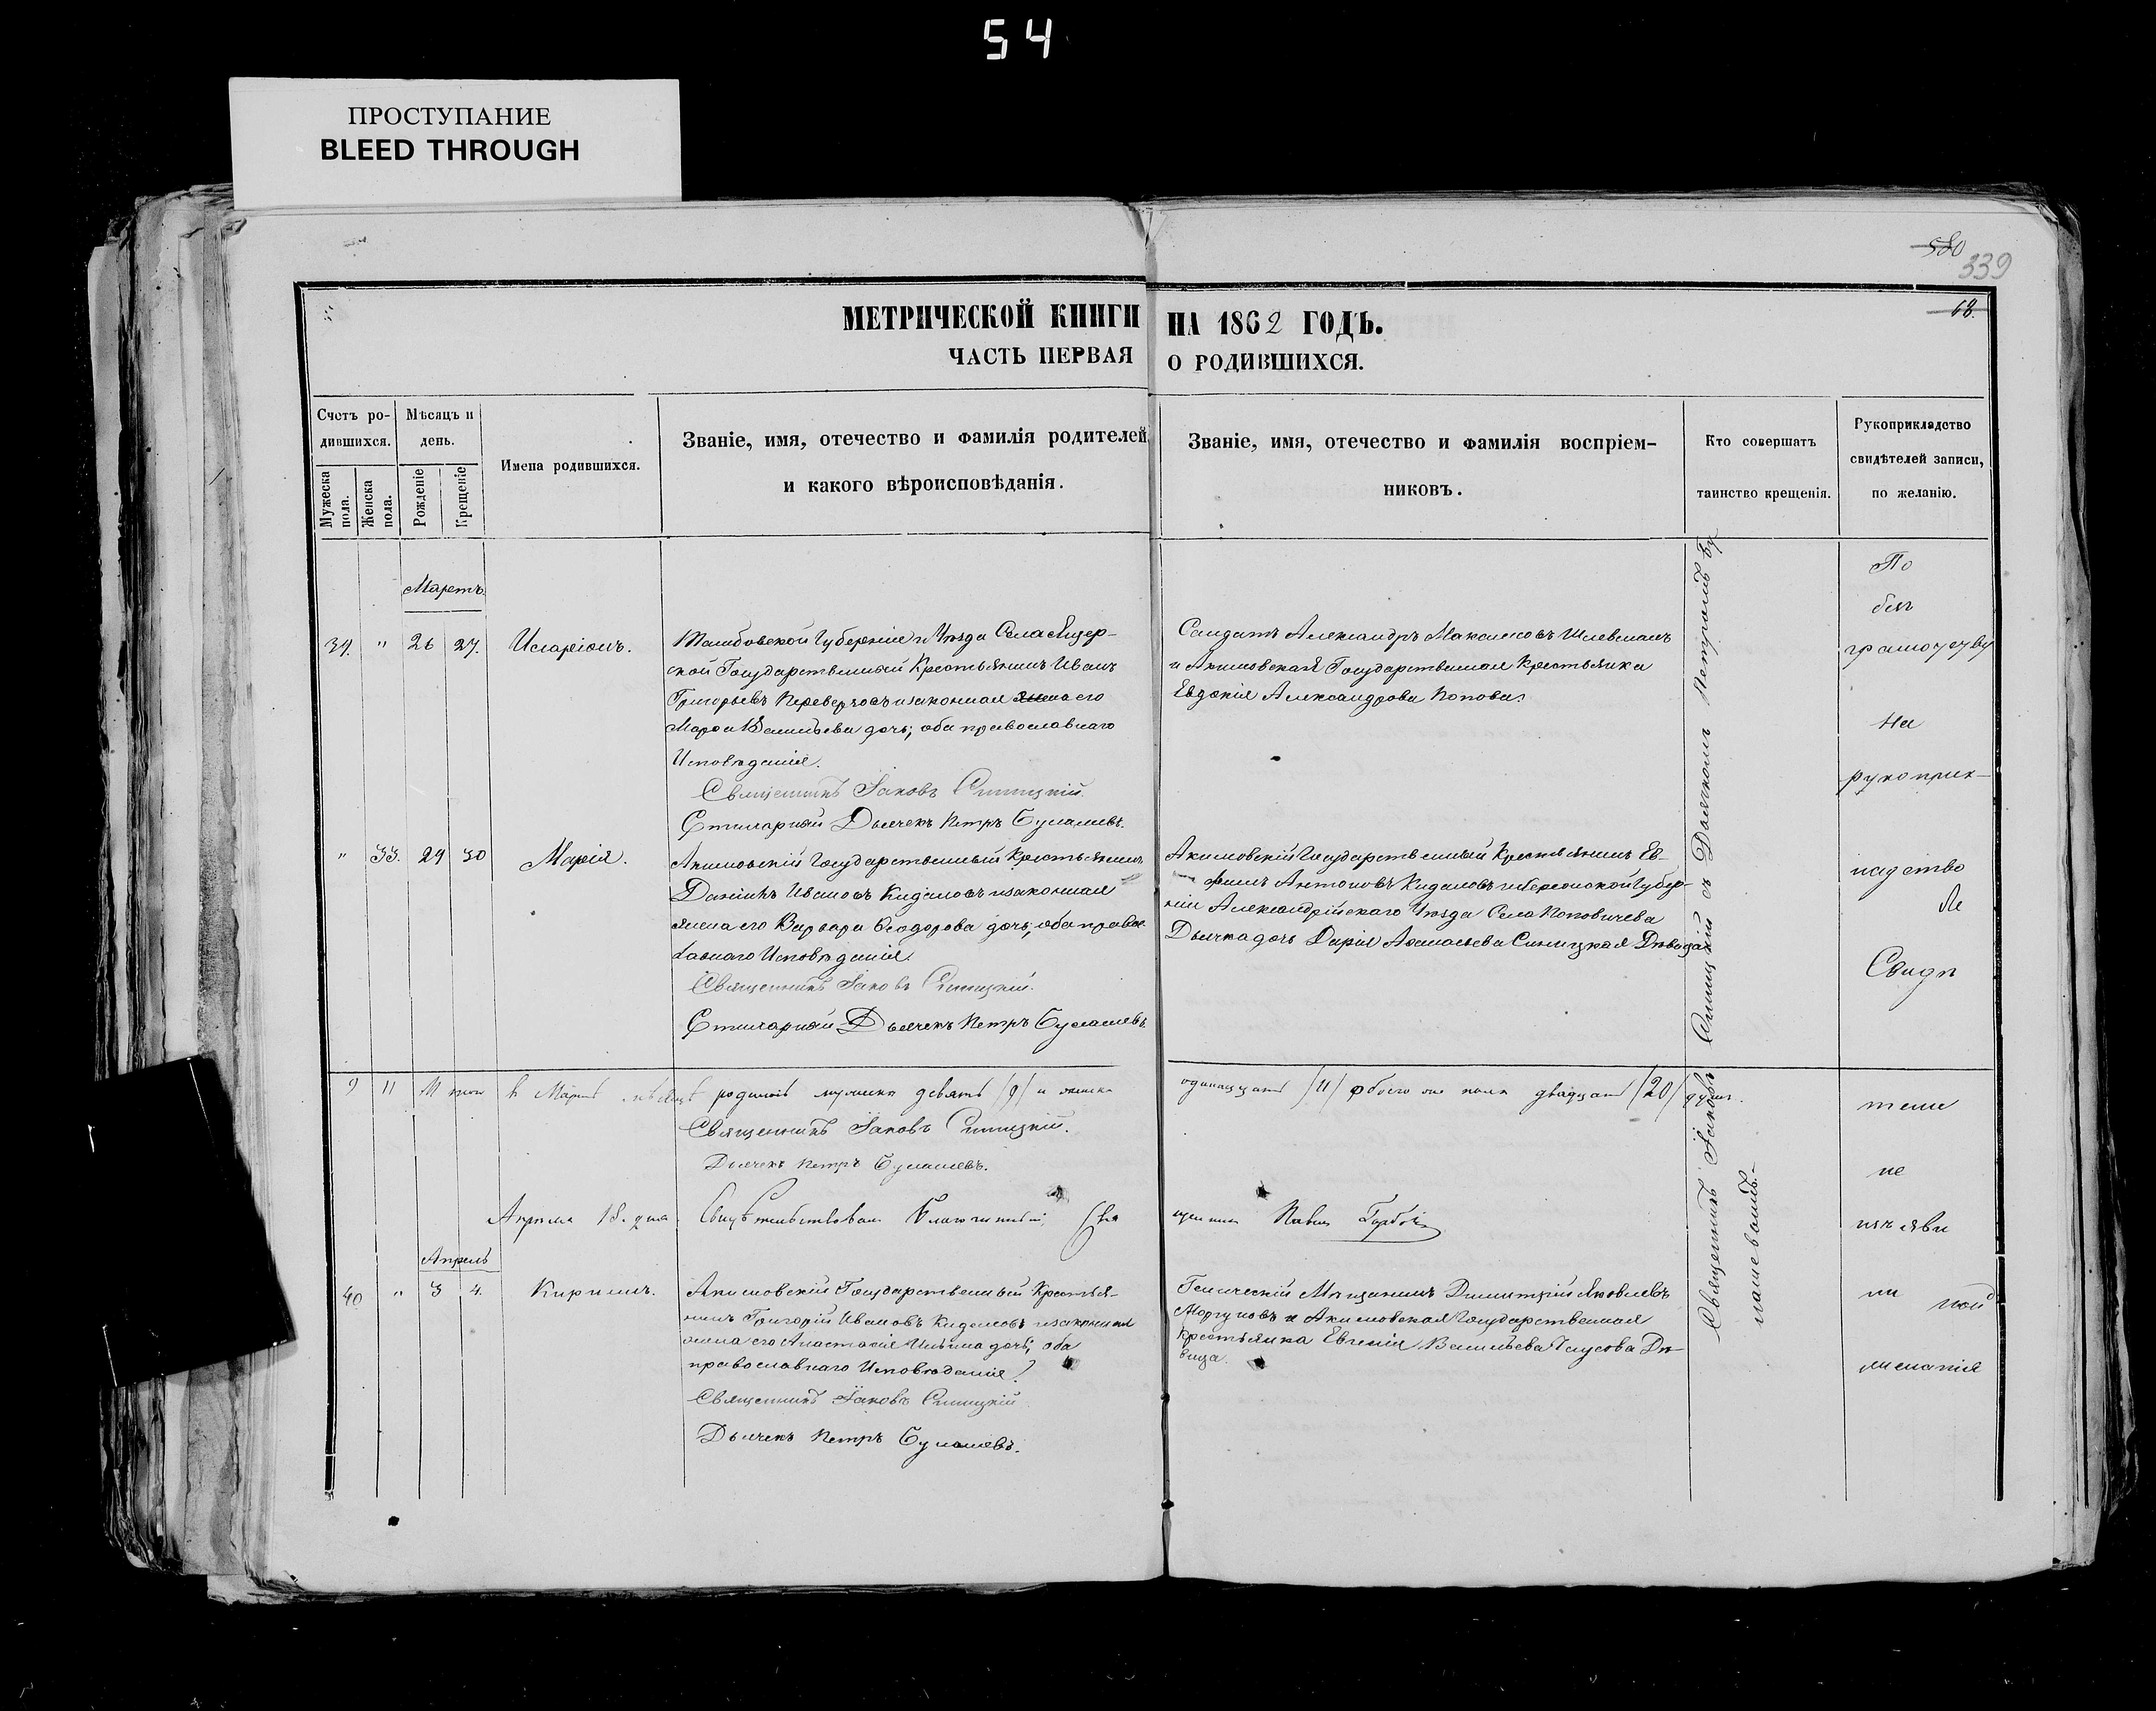 54
ПРОСТУПАНИЕ
BLEED THROUGH
580
339
68.
МЕТРИЧЕСКОЙ КНИГИ НА 1862 ГОДЪ.
ЧАСТЬ ПЕРВАЯ О РОДИВШИХСЯ.
Счетъ ро-
дившихся.
Мужеска пола.
Женска пола.
Мѣсяцъ и
день.
Рожденіе
Крещеніе
Имена родившихся.
Званіе, имя, отечество и фамилія родителей,
и какого вѣроисповѣданія.
Званіе, имя, отечество и фамилія воспріем-
никовъ.
Кто совершатъ
таинство крещенія.
Рукоприкладство
свидѣтелей записи,
по желанію.
Мартъ.
39. " 26 27. Иларіонъ.
Тамбовской Губерніи и Уѣзда Села
ской Государственный Крестьянинъ Иванъ
Григорьевъ и законная жена его
Васильева дочь; оба православнаго
Исповѣданія.
Священникъ Іаковъ Синицкій.
Дьячекъ Петръ
Солдатъ Александръ Максимовъ
и Акимовская Государственная Крестьянка
Евдокія Александрова Попова.
" 33. 29 30 Марія.
Акимовскій Государственный Крестьянинъ
Даніилъ Ивановъ Кидаловъ и законная
жена его Варвара Ѳеодорова дочь; оба право
лавнаго Исповѣданія.
Священникъ Іаковъ Синицкій.
Дьячекъ Петръ
Акимовскій Государственный Крестьянинъ Ев-
фимъ Антоновъ Кидаловъ и Херсонской Губер-
ніи Александрійскаго Уѣзда Села Поповичева
Дьячка дочь Дарія Аѳанасьева Синицкая Дѣвица
9 11 Итого въ Мартѣ мѣсяцѣ родилось мужеска девять /9/ и женска одинадцать /11/ обоего же пола двадцать /20/ душъ.
Священникъ Іаковъ Синицкій.
Дьячекъ Петръ
Апрѣля 18. дня. Свидѣтельствовалъ Благочинный, Священникъ Павелъ
Апрѣль
40 " 3 4. Кириллъ.
Акимовскій Государственный Крестья-
нинъ Григорій Ивановъ Кидаловъ и законная
жена его Анастасія Ильина дочь; оба
православнаго Исповѣданія.
Священникъ Іаковъ Синицкій
Дьячекъ Петръ
Геническій Мѣщанинъ Димитрій Яковлевъ
Моргуновъ и Акимовская Государственная
Крестьянка Евгенія Васильева Дѣ-
вица.
Священникъ Іаковъ Синицкій съ Дьячкомъ Петромъ
По
грамотству
На
рукоприк-
ладство
Свидѣ
тели
не
изъяви
ли
желанія